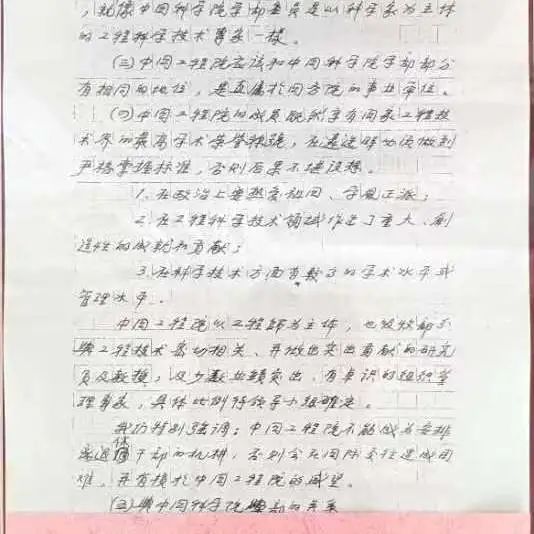 ，就像中国科学院学部委员是以科学家为主体
的工程科学技术专家一样。
(三)中国工程院应该和中国科学院学部部分
有相同的地位，是直属于国务院的事业单位。
(四)中国工程院的成员既然享有国家工程技
术界的最高学术荣誉称号，在遴选时必须做到
严格掌握标准，否则后果不堪设想。
1.在政治上要热爱祖国、学风正派；
2.在工程科学技术领域作出了重大、创
造性的成就和贡献；
3.在科学技术方面有较高的学术水平或
管理水平。
中国工程院以工程师为主体，也吸收部分
与工程技术密切相关、并做出突出贡献的研究
员及教授，及少数业绩突出、有卓识的组织管
理专家，具体比例待领导小组确定。
我们特别强调：中国工程院不能成为安排
离退休干部的机构，否则会在国际交往造成困
难，并有损于中国工程院的威望。
(三)与中国科学院 的关系